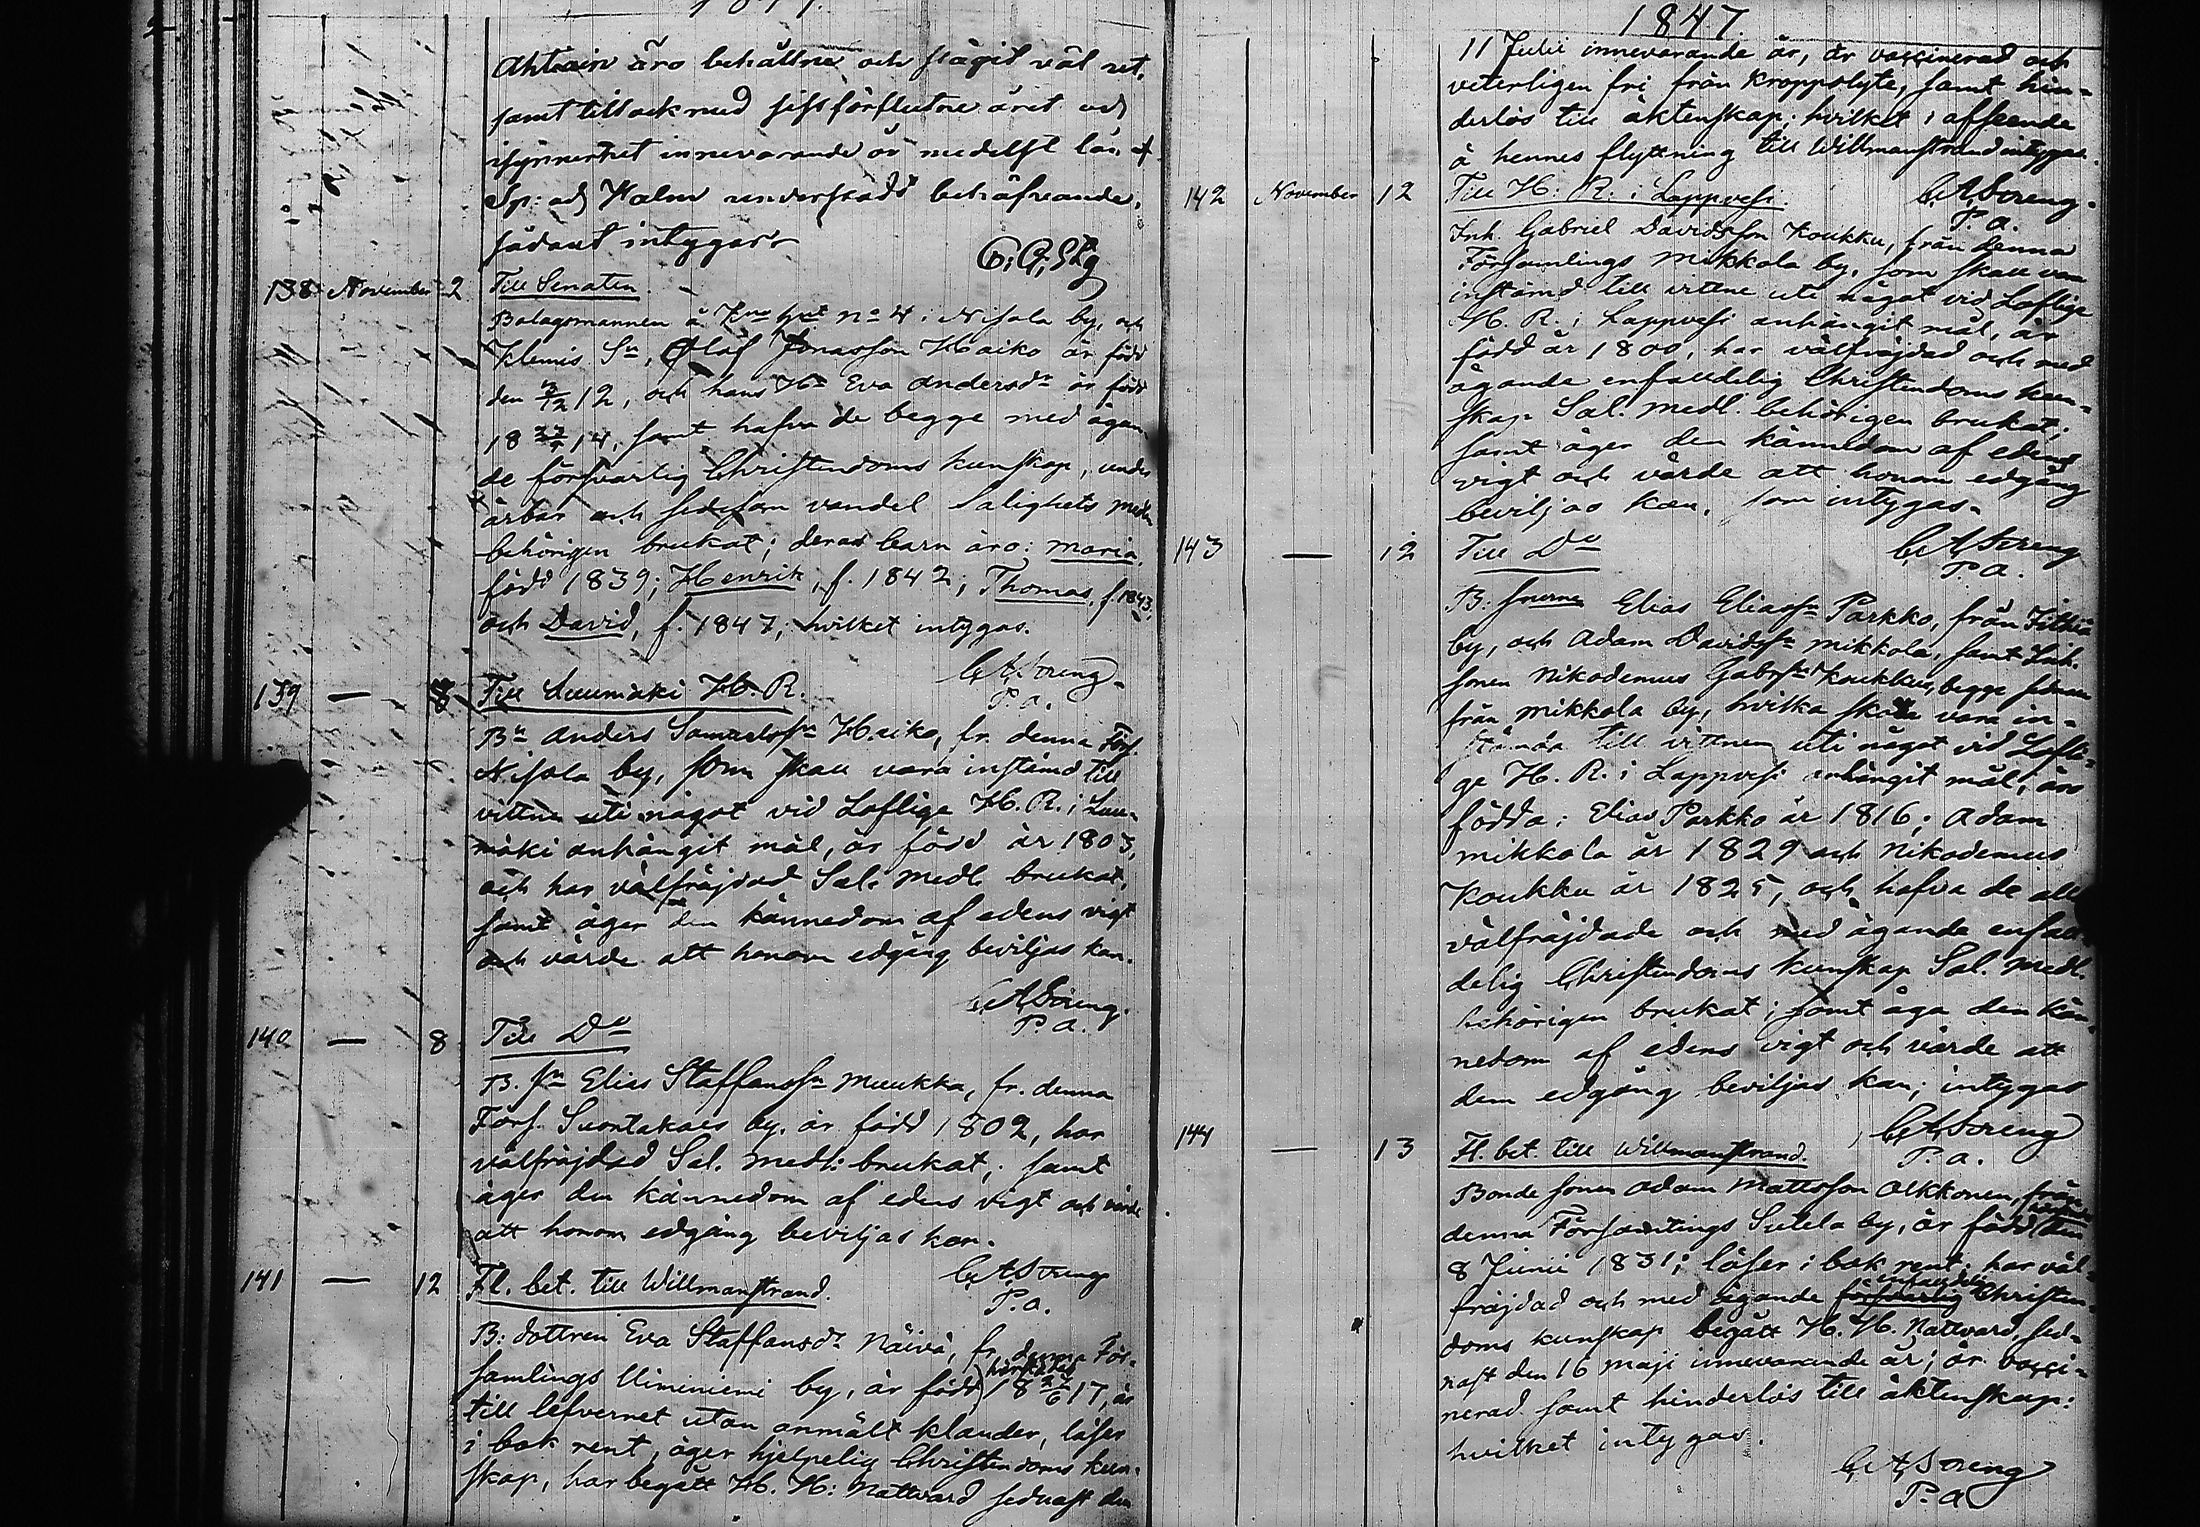 äro behållne och slagit väl ut,
samt tillochmed sistförflutne året och
isynnerhet innevarande år medelst lån af
Sp: och Halm understödd behöfvande,
sådant intygar
138 November 2 Till Senaten.
Bolagsmannen å No 4 i Nisola by, och
Klemis Sn, Olof Jonasson Haiko är född
den 12, och hans Ha Eva Andersdr är född
18 14, samt hafva de begge med ägan-
de försvarlig Christendoms kunskap, under
ärbar och sedesam vandel Salighets medlen
behörigen brukat; deras barn äro: Maria,
född 1839; Henrik, f. 1842; Thomas, f. 1843,
och David, f. 1847, hvilket intygas.
C, A, Soreng.
P. a.
139 — 8 Till Luumäki H. R.
Bn Anders Samuelssn Haiko, fr. denna Förs.
Nisola by, som skall vara instämd till
vittne uti något vid Loflige H. R. i Luu-
mäki anhängit mål, är född år 1803,
och har välfräjdad Sal. Medl. brukat,
samt äger den kännedom af edens vigt
och värde att honom edgång beviljas kan.
C, A, Soreng.
P. a.
140 — 8 Till Do
B. sn Elias Staffanssn Muukka, fr. denna
Förs. Suontakaes by, är född 1802, har
välfräjdad Sal. Medl: brukat, samt
äger den kännedom af edens vigt och värde
att honom edgång beviljas kan.
C, A, Soreng
P. a.
141 — 12 Fl. bet. till Willmanstrand.
B: dottren Eva Staffansdr Näivä, fr. denna För-
härstädes
samlings Uiminiemi by, är född 18 27/6 17, är
till lefvernet utan anmält klander, läser
i bok rent, äger hjelpelig Christendoms kun-
skap, har begått H. H: Nattvard sednast den
1847.
11 Julii innevarande år, är vaccinerad och
veterligen fri från kroppslyte, samt hin-
derlös till äktenskap; hvilket i afseende
å hennes flyttning till Willmanstrand intygas.
C, A, Soreng.
P. a.
142 November 12 Till H: R: i Lappvesi.
Inh. Gabriel Davidsson Koukku, från denna
Församlings Mikkola by, som skall vara
instämd till vittne uti något vid Loflige
H. R. i Lappvesi anhängit mål, är
född år 1800, har välfräjdad och med
ägande enfaldelig Christendoms kun-
skap Sal. Medl. behörigen brukat;
samt äger den kännedom af edens
vigt och värde att honom edgång
beviljas kan, som intygas.
C, A, Soreng
P. a.
143 — 12 Till Do
B: sönerne Elias Eliassn Parkko, från
by, och Adam Davidssn Mikkola, samt Inh.
sonen Nikodemus Gabrsn Koukku, begge
från Mikkola by, hvilka skola vara in-
stämda till vittnen uti något vid Lofli-
ge H. R. i Lappvesi anhängit mål, äro
födda: Elias Parkko år 1816; Adam
Mikkola år 1829 och Nikodemus
Koukku år 1825, och hafva de alla
välfräjdade och med ägande enfal-
delig Christendoms kunskap Sal. Medl.
behörigen brukat; samt äga den kän-
nedom af edens vigt och värde att
dem edgång beviljas kan; intygas
C, A, Soreng
P. a.
144 — 13 Fl. bet. till Willmanstrand.
Bonde sonen Adam Mattsson Olkkonen, från
denna Församlings Sutela by, är född den
8 Junii 1831; läser i bok rent; har väl-
enfaldelig
fräjdad och med ägande försvarlig Christen-
doms kunskap begått H. H. Nattvard sed-
nast den 16 Maji innevarande år; är vacci-
nerad samt hinderlös till äktenskap;
hvilket intygas.
C, A, Soreng
P. a.